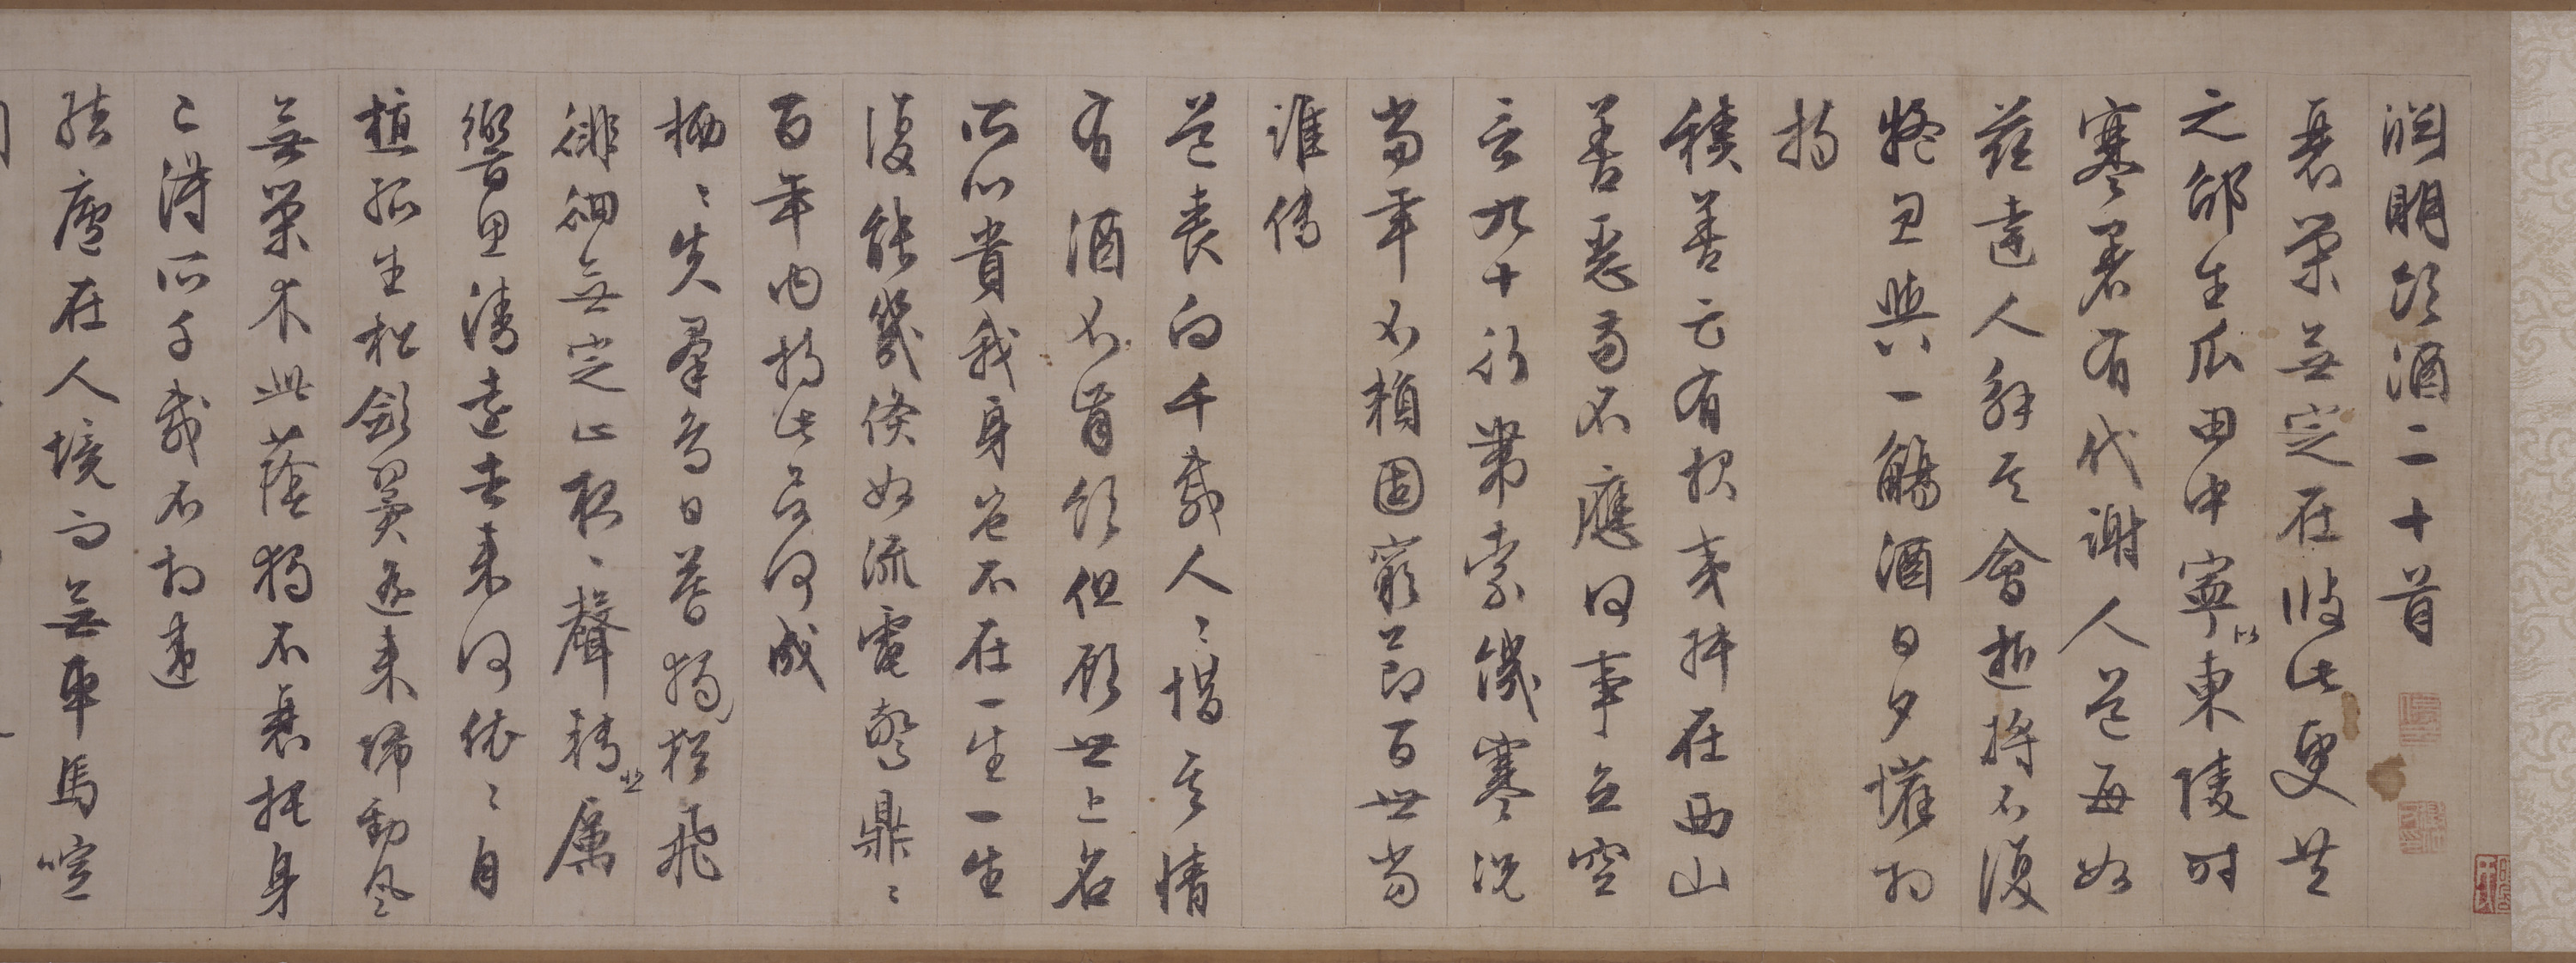 淵明飲酒二十首
衰榮無定在彼此更共
之邵生瓜田中寧似東陵時
寒暑有代謝人道每如
茲達人解其會逝將不復
疑忽與一觴酒日夕懽相
持
積善云有報夷叔在西山
善惡苟不應何事立空
言九十行帶索饑寒況
當年不賴固窮節百世當
誰傳
道喪向千載人〻惜其情
有酒不肯飲但顧世上名
所以貴我身豈不在一生一生
復能幾倏如流電驚鼎〻
百年內持此欲何成
栖〻失羣鳥日暮獨猶飛
徘徊無定止夜〻聲轉悲厲
響思清遠去來何依〻自
植孤生松斂翼遙來歸勁風
無榮木此蔭獨不衰託身
已得所千載不相違
結廬在人境而無車馬喧